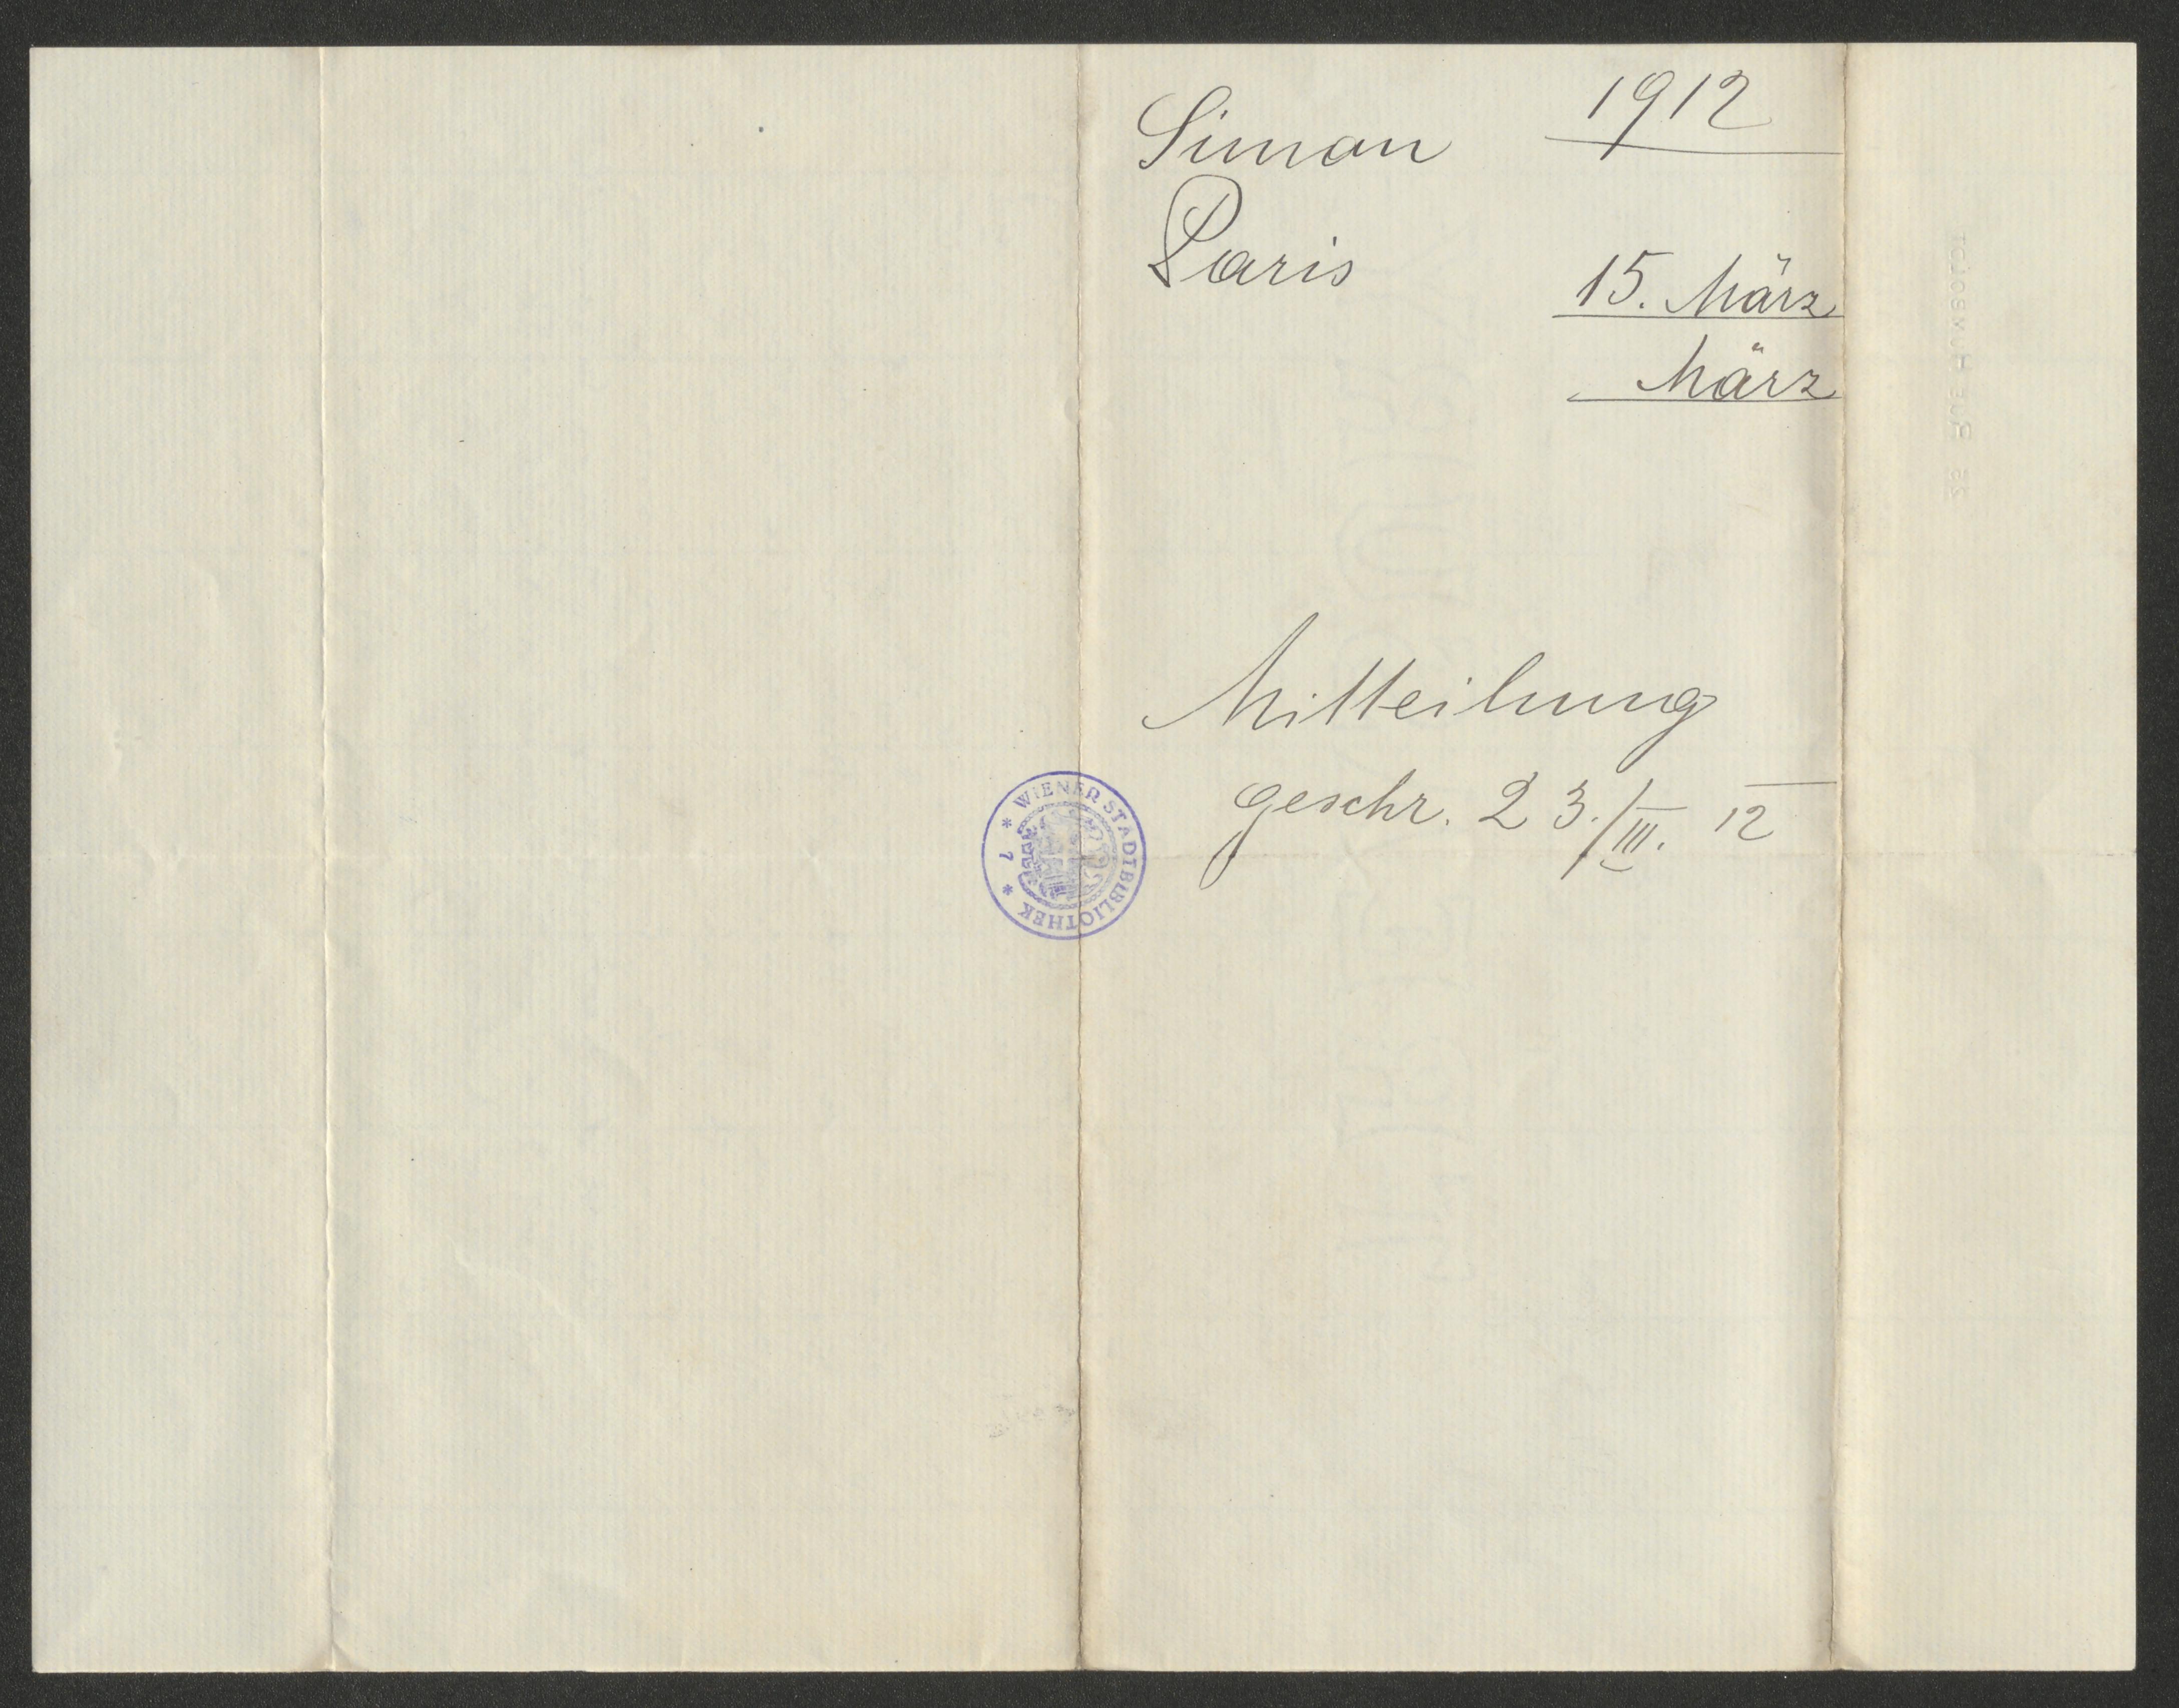 Simon 1912
Paris
15. März
März
Mitteilung
geschr. 23./III. 12
* WIENER STADTBIBLIOTHEK * 7